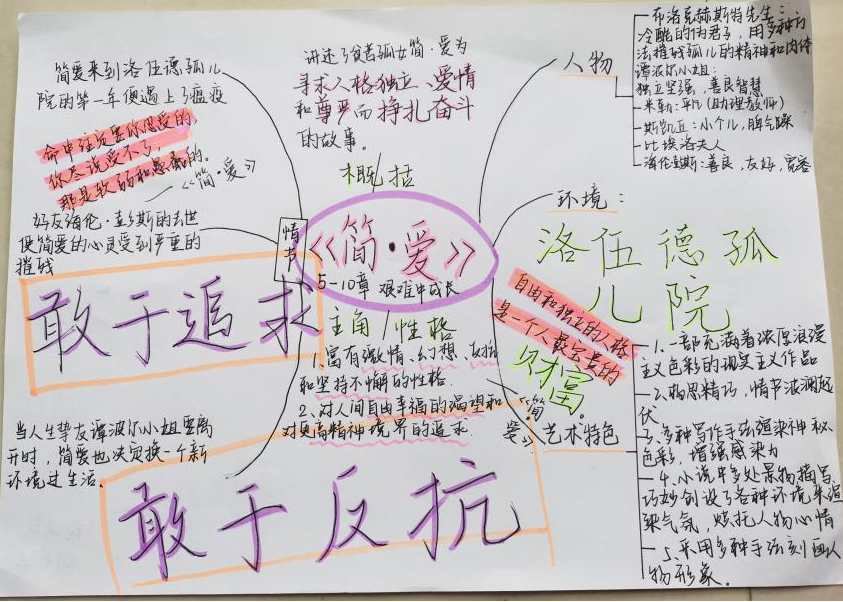 简爱来到洛伍德孤儿
院的第一年便遇上了瘟疫
命中注定要你忍受的,
你尽说受不了,
那是软弱和愚蠢的。
——《简·爱》
好友海伦·彭斯的去世
使简爱的心灵受到严重的
摧残
敢于追求
当人生挚友谭波尔小姐要离
开时,简爱也决定换一个新
环境过生活。
敢于反抗
情节
讲述了贫苦孤女简·爱为
寻求人格独立、爱情
和尊严而挣扎奋斗
的故事。
概括
《简·爱》
5-10章 艰难中成长
主角/性格
1、富有激情、幻想、反抗
和坚持不懈的性格.
2、对人间自由幸福的渴望和
对更高精神境界的追求.
人物
布洛克赫斯特先生:
冷酷的伪君子,用多种方
法摧残孤儿的精神和肉体
谭波尔小姐:
独立坚强,善良智慧
米勒:平凡(助理教师)
斯凯丘:小个儿,脾气躁
比埃洛夫人
海伦彭斯:善良,友好,宽容
环境:
洛伍德孤
儿院
自由和独立的人格
是一个人最宝贵的
财富。
《简·
爱》
艺术特色
1、一部充满着浓厚浪漫
主义色彩的现实主义作品
2、构思精巧,情节波澜起
伏
3、多种写作手法渲染神秘
色彩,增强感染力
4、小说中多处景物描写,
巧妙创设了各种环境来渲
染气氛,烘托人物心情
5、采用多种手法刻画人
物形象。